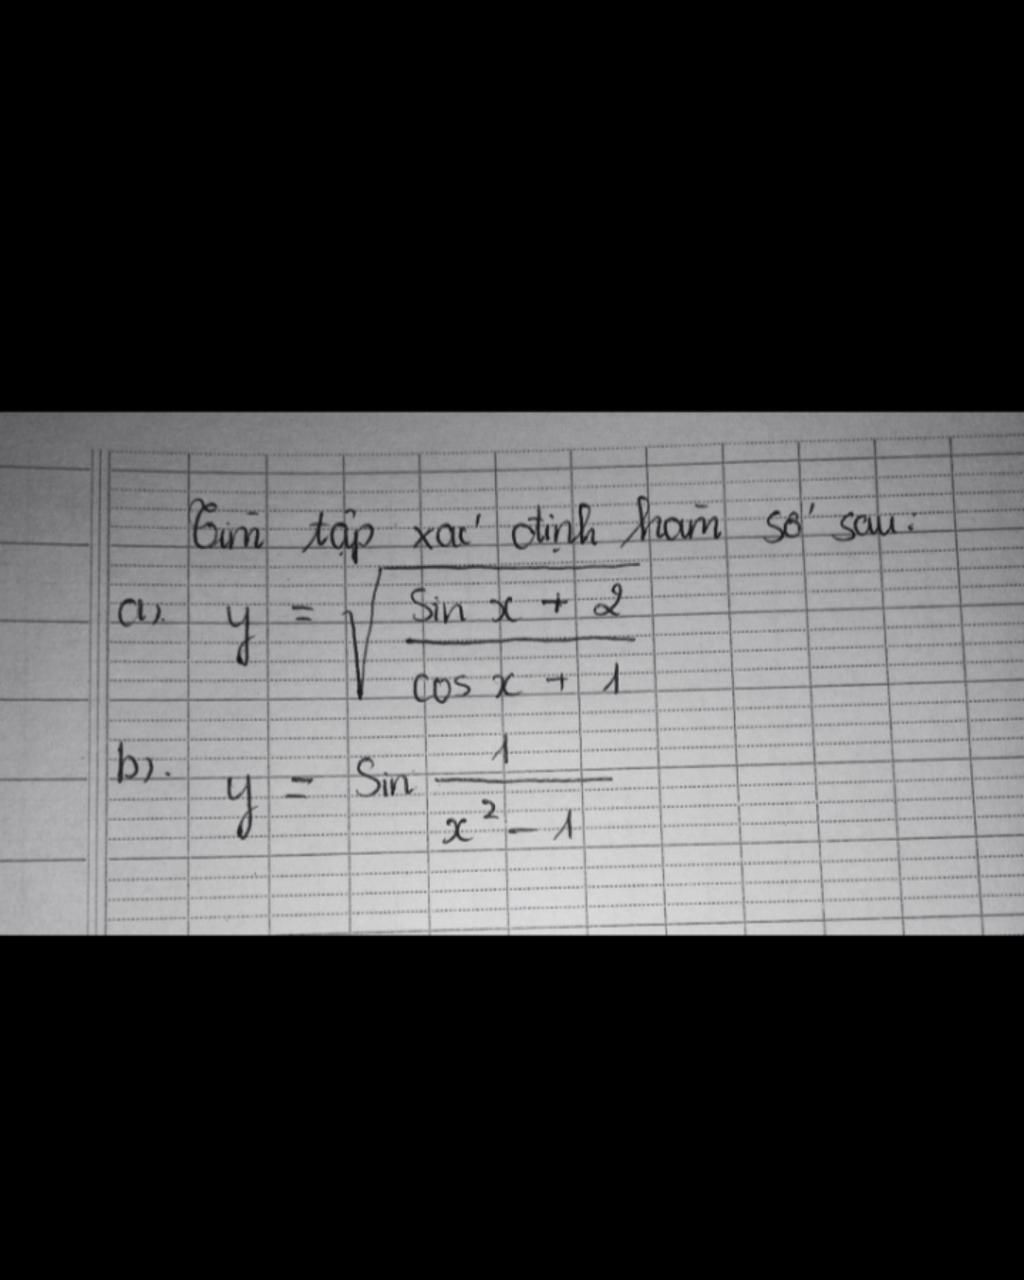 Tìm tập xác định hàm số sau:
a). y = √((Sin x + 2)/(cos x + 1))
b). y = Sin 1/(x² - 1)